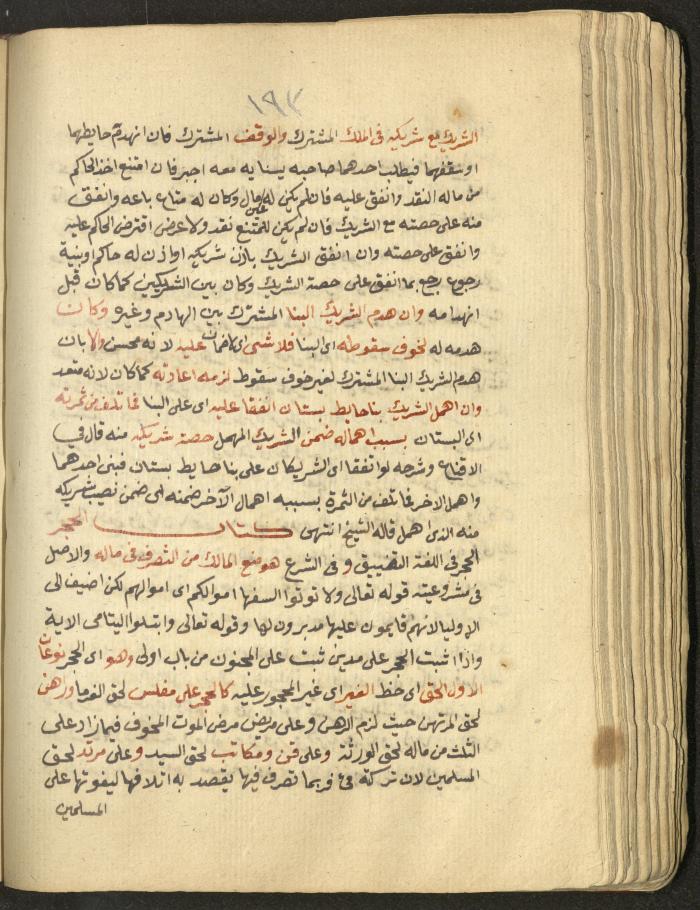 ١٩٣
الشريك مع شريكه فى الملك المشترك والوقف المشترك فان انهدم حايطهما
او سقفهما فيطلب احدهما صاحبه ببنايه معه اجبر فان امتنع اخذ الحاكم
من ماله النقد وانفق عليه فان لم يكن له عين مال وكان له متاع باعه وانفق
منه على حصته مع الشريك فان لم يكن للممتنع نقد ولا عرض اقترض الحاكم عليه
وانفق على حصته وان انفق الشريك باذن شريكه او اذن له حاكم او بنية
رجوع رجع بما انفق على حصة الشريك وكان بين الشريكين كما كان قبل
انهدامه وان هدم الشريك البنا المشترك بين الهادم وغيره وكان
هدمه له لخوف سقوطه اى البنا فلا شى اى لا ضمان عليه لانه محسن والا بان
هدم الشريك البنا المشترك لغير خوف سقوط لزمه اعادته كما كان لانه متعد
وان اهمل الشريك بنا حايط بستان اتفقا عليه اى على البنا فما تلف من ثمرته
اى البستان بسبب اهماله ضمن الشريك المهمل حصة شريكه منه قال في
الاقناع وشرحه لو اتفقا اى الشريكان على بنا حايط بستان فبنى احدهما
واهمل الاخر فما تلف من الثمرة بسببه اهمال الآخر ضمنه اى ضمن نصيب شريكه
منه الذى اهمل قاله الشيخ انتهى كتاب الحجر
الحجر فى اللغة التضييق وفى الشرع هو منع المالك من التصرف فى ماله والاصل
فى مشروعيته قوله تعالى ولا توتوا السفها اموالكم اى اموالهم لكن اضيف الى
الاوليا لانهم قايمون عليها مدبرون لها وقوله تعالى وابتلوا اليتامى الاية
واذا ثبت الحجر على مدين ثبت على المجنون من باب اولى وهو اى الحجر نوعان
الاول لحق اى حظ الغير اى غير المحجور عليه كالحجر على مفلس لحق الغرما وراهن
لحق المرتهن حيث لزم الرهن وعلى مريض مرض الموت المخوف فيما زاد على
الثلث من ماله لحق الورثة وعلى قن ومكاتب لحق السيد وعلى مرتد لحق
المسلمين لان تركته فىء فربما تصرف فيها يقصد به اتلافها ليفوتها على
المسلمين